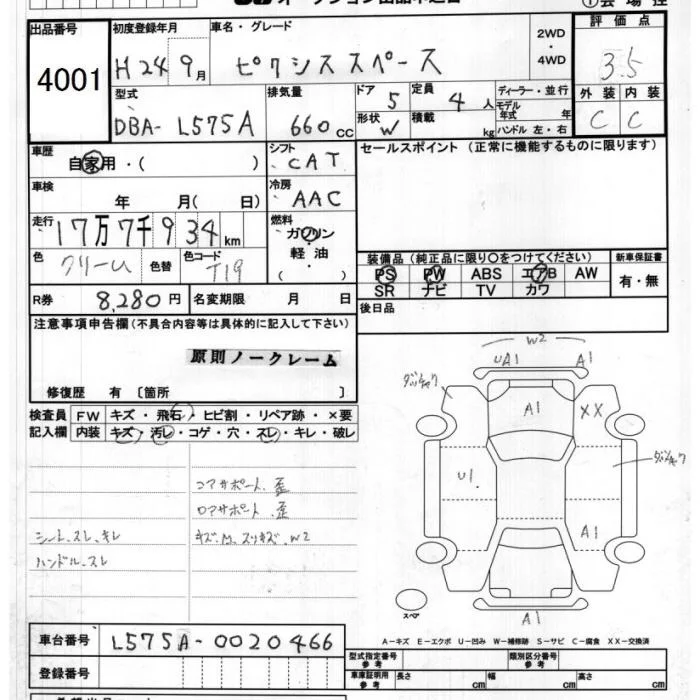 出品番号 4001
初度登録年月 H24年9月
車名・グレード ピクシススペース
2WD・4WD
評価点 3.5
型式 DBA-L575A
排気量 660cc
ドア 5
形状 W
定員 4人
積載 kg
ディーラー・並行
モデル年式 年
ハンドル 左・右
外装 C 内装 C
車歴 自家用・( )
シフト CAT
セールスポイント (正常に機能するものに限ります)
車検 年 月( 日)
冷房 AAC
走行 17万7千934km
燃料 ガソリン 軽油・( )
色 クリーム 色替 色コード T19
装備品 (純正品に限り○をつけてください) 新車保証書
PS PW ABS エアB AW 有・無
SR ナビ TV カワ
R券 8,280円 名変期限 月 日
後日品
注意事項申告欄(不具合内容等は具体的に記入して下さい)
原則ノークレーム
修復歴 有 [箇所 ]
検査員記入欄
FW キズ・飛石・ヒビ割・リペア跡・×要
内装 キズ・汚レ・コゲ・穴・スレ・キレ・破レ
コアサポート、歪
ロアサポート、歪
シート、スレ、キレ キズ、M、スリキズ、W2
ハンドル、スレ
W2
UA1 A1
A1 XX
U1
A1
スペア
A1
A-キズ E-エクボ U-凹み W-補修跡 S-サビ C-腐食 XX-交換済
車台番号 L575A-0020466
型式指定番号 参考 類別区分番号 参考
登録番号
車庫証明用 参考 長さ cm 幅 cm 高さ cm